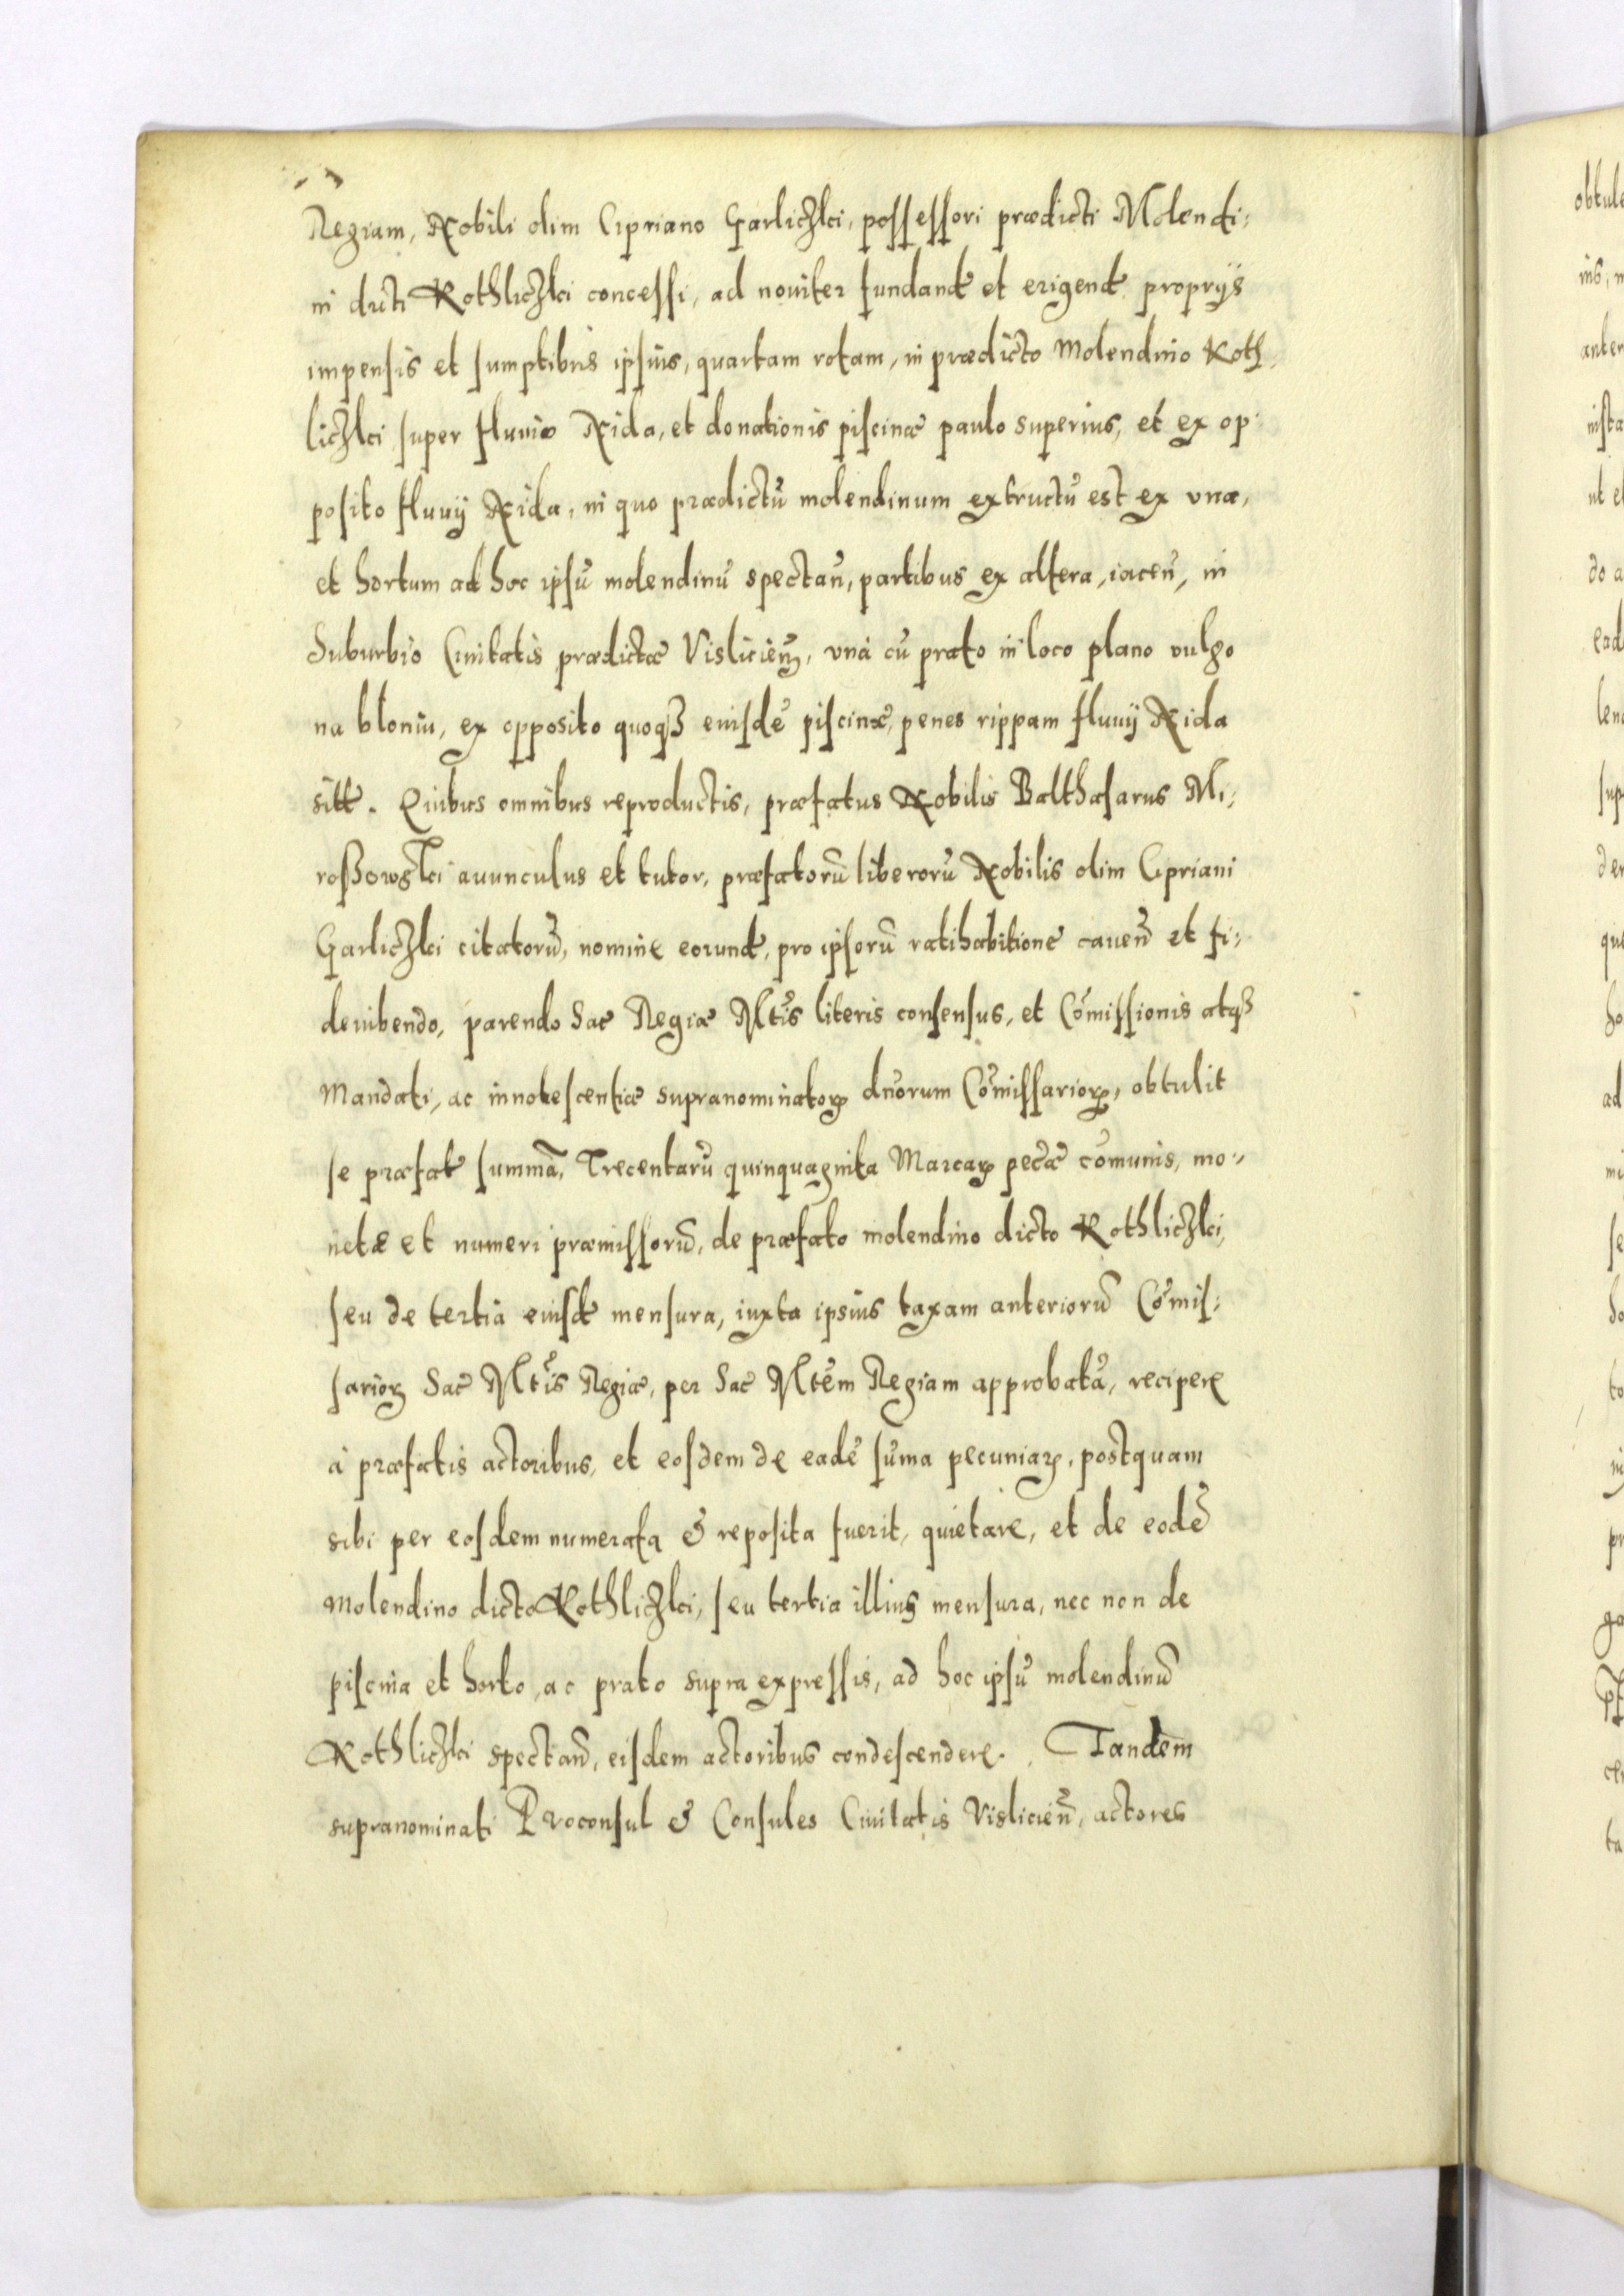 Regiam, Nobili olim Cipriano Garliczki, possessori prædicti Molendi:
ni dicti Kothliczki concessi, ad nouiter fundand et erigend proprys
impensis et sumptibus ipsius, quartam rotam, in prædicto Molendino Koth
liczki super fluuio Nida, et donationis piscinæ paulo superius, et ex op
posito fluuij Nida, in quo prædictū molendinum extructū est ex vna,
et hortum ad hoc ipsū molendinū spectan̄, partibus ex altera, iacen̄, in
Suburbio Ciuitatis prædictæ Vislicien̄, vná cū prato in loco plano vulgo
na bloniu, ex opposito quoqȝ eiusdē piscinæ, penes rippam fluuij Nida
sitt. Quibus omnibus reproductis, præfatus Nobilis Balthasarus Mi:
roßowski auunculus et tutor, præfatorū liberorū Nobilis olim Cipriani
Garliczki citatorū, nomine eorund, pro ipsorū ratihabitione cauen̄ et fi:
deiubendo, parendo Sac Regiæ Mtis literis consensus, et Cōmissionis atqȝ
Mandati, ac innotescentiæ supranominatorꝝ dnorum Cōmissariorꝝ, obtulit
se præfat summā, Trecentarū quinquaginta Marcarꝝ pecæ cōmunis, mo:
netæ et numeri præmissorū, de præfato molendino dicto Kothliczki,
seu de tertia eiusd mensura, iuxta ipsius taxam anteriorū Cōmis:
sariorꝝ Sac Mtis Regiæ, per Sac Mtem Regiam approbatā, recipere
á præfatis actoribus, et eosdem de eadē sūma pecuniarꝝ, postquam
sibi per eosdem numerata & reposita fuerit, quietare, et de eodē
Molendino dicto Kothliczki, seu tertia illius mensura, nec non de
piscina et horto, ac prato supra expressis, ad hoc ipsū molendinū
Kothliczki spectan̄, eisdem actoribus condescendere. Tandem
supranominati Proconsul & Consules Ciuitatis Vislicien̄, actores